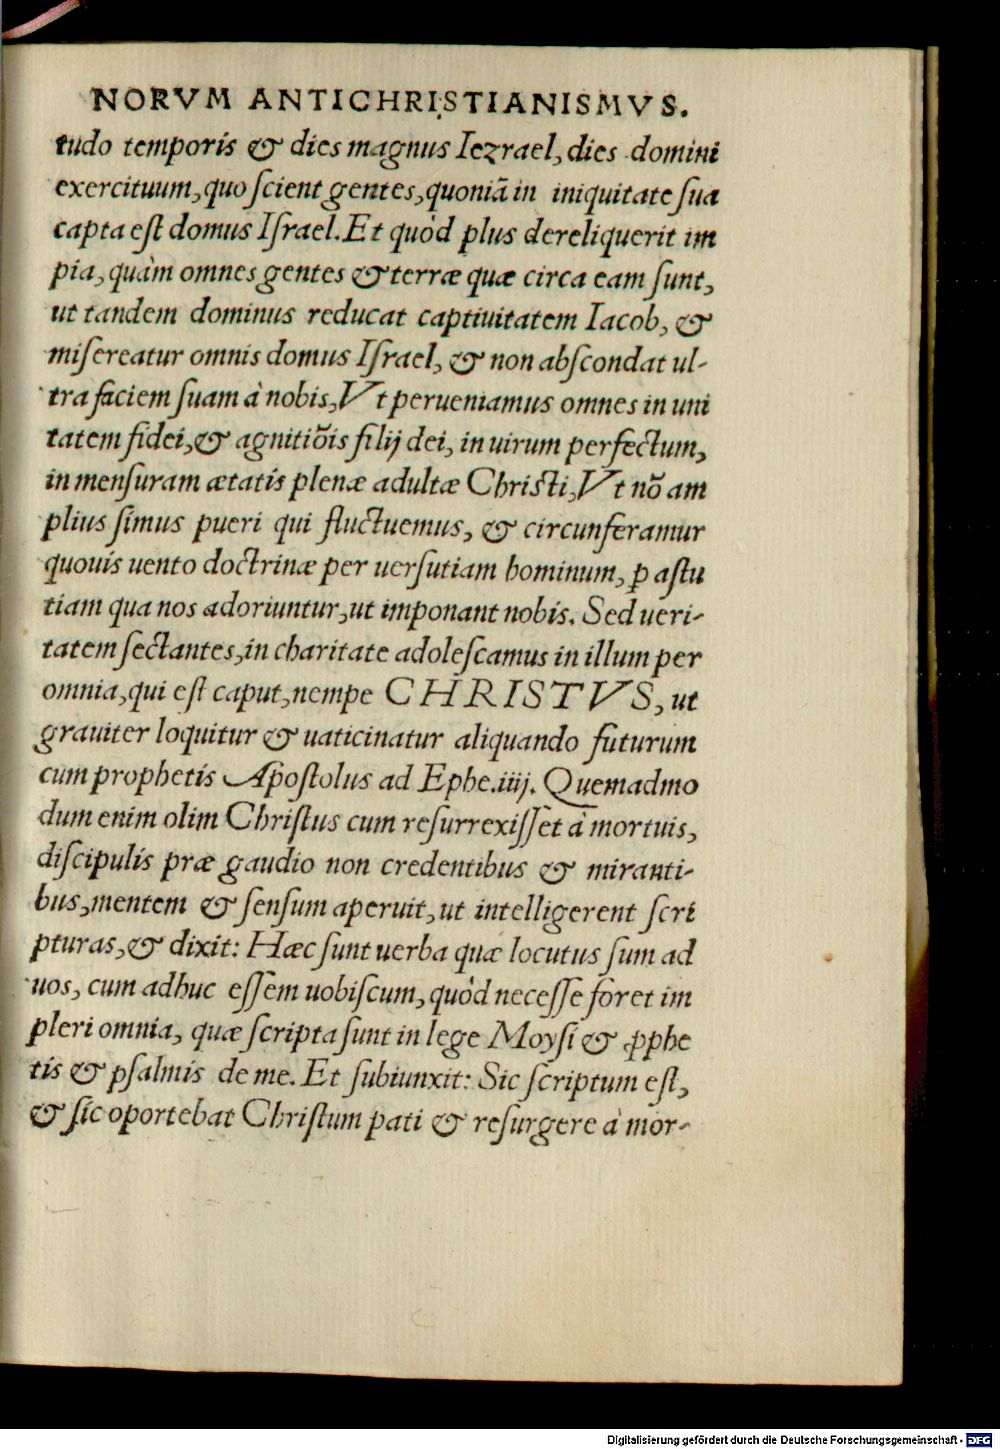 NORVM ANTICHRISTIANISMVS.
tudo temporis & dies magnus Iezrael, dies domini
exercituum, quo ſcient gentes, quoniā in iniquitate ſua
capta eſt domus Iſrael. Et quòd plus dereliquerit im
pia, quàm omnes gentes & terræ quæ circa eam ſunt,
ut tandem dominus reducat captiuitatem Iacob, &
miſereatur omnis domus Iſrael, & non abſcondat ul-
tra faciem ſuam à nobis, Vt perueniamus omnes in uni
tatem fidei, & agnitiōis filij dei, in uirum perfectum,
in menſuram ætatis plenæ adultæ Chriſti, Vt nō am
plius ſimus pueri qui fluctuemus, & circunferamur
quouis uento doctrinæ per uerſutiam hominum, ꝑ aſtu
tiam qua nos adoriuntur, ut imponant nobis. Sed ueri-
tatem ſectantes, in charitate adoleſcamus in illum per
omnia, qui eſt caput, nempe CHRISTVS, ut
grauiter loquitur & uaticinatur aliquando futurum
cum prophetis Apoſtolus ad Ephe.iiij. Quemadmo
dum enim olim Chriſtus cum reſurrexiſſet à mortuis,
diſcipulis præ gaudio non credentibus & miranti-
bus, mentem & ſenſum aperuit, ut intelligerent ſcri
pturas, & dixit: Hæc ſunt uerba quæ locutus ſum ad
uos, cum adhuc eſſem uobiſcum, quòd neceſſe foret im
pleri omnia, quæ ſcripta ſunt in lege Moyſi & ꝓphe
tis & pſalmis de me. Et ſubiunxit: Sic ſcriptum eſt,
& ſic oportebat Chriſtum pati & reſurgere à mor-
Digitalisierung gefördert durch die Deutsche Forschungsgemeinschaft - DFG